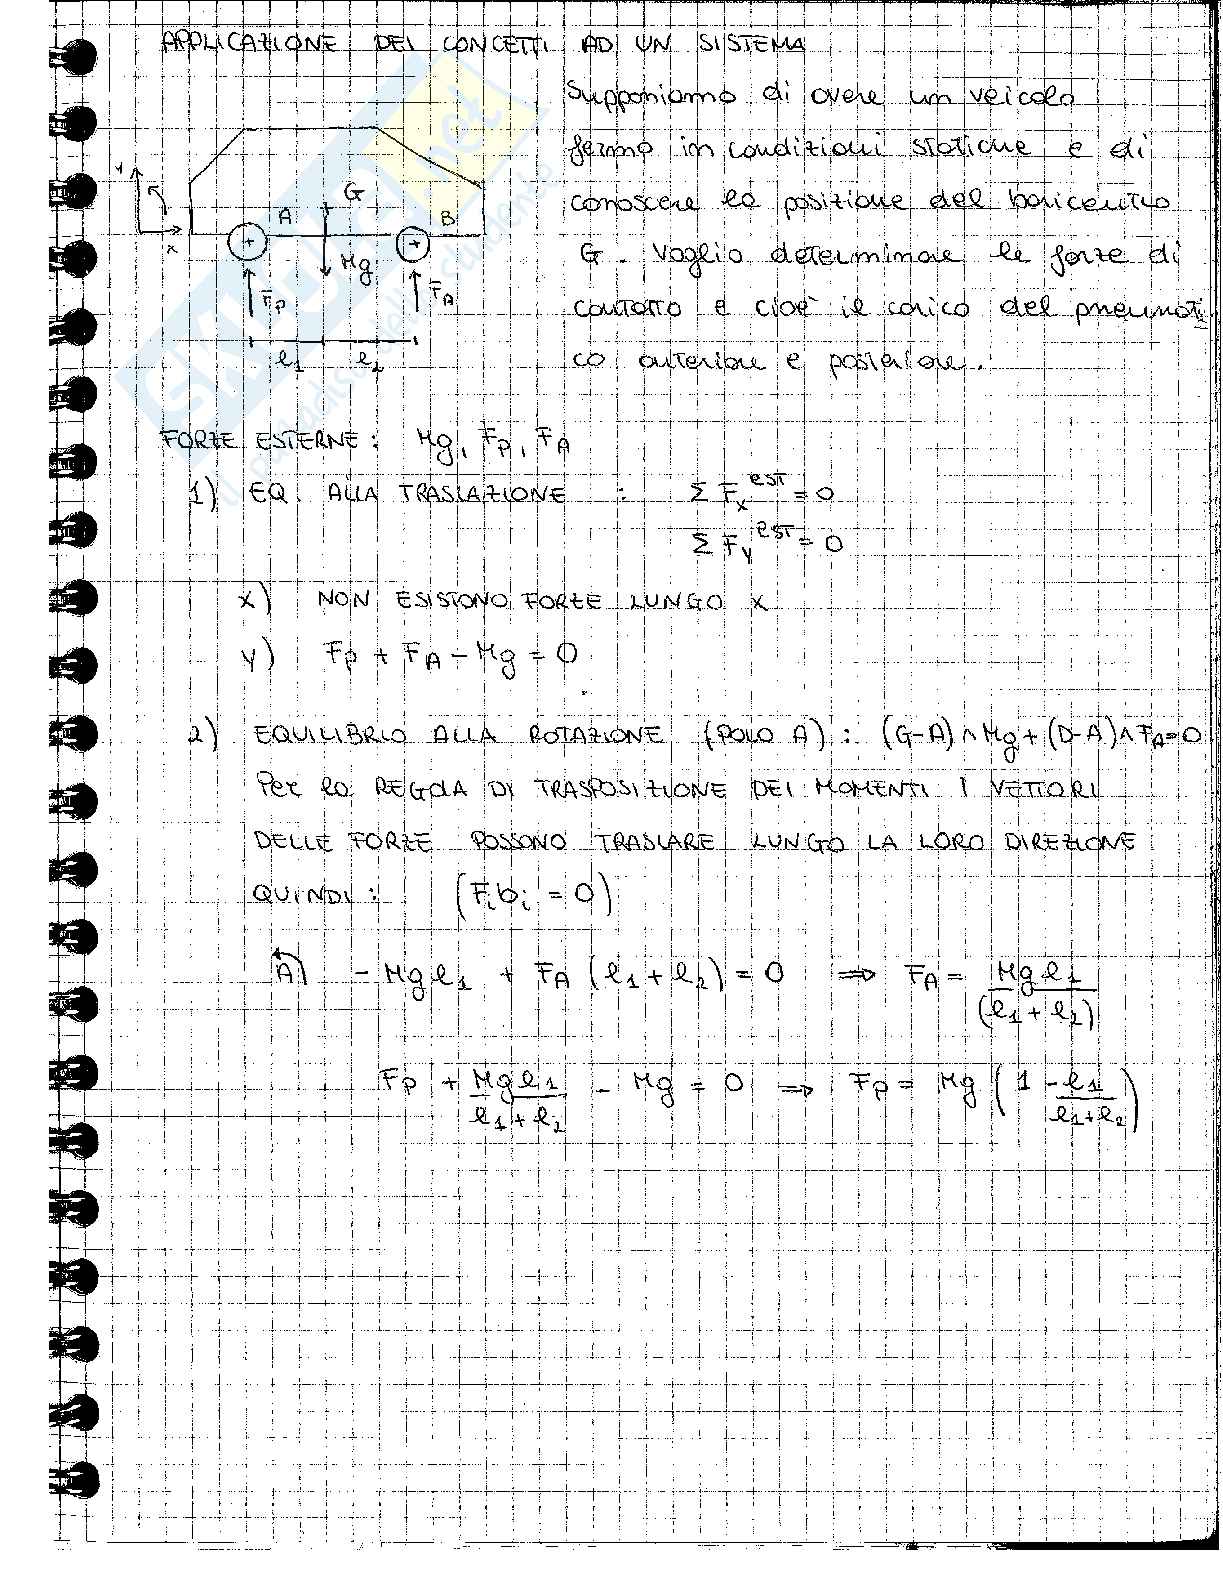 APPLICAZIONE DEI CONCETTI AD UN SISTEMA
Supponiamo di avere un veicolo
fermo in condizioni statiche e di
conoscere la posizione del baricentro
G. Voglio determinare le forze di
contatto e cioè il carico del pneumati
co anteriore e posteriore.
y
x
A
G
B
Mg
Fp
FA
l1
l2
FORZE ESTERNE: Mg, Fp, FA
1) EQ. ALLA TRASLAZIONE : Σ Fx^EST = 0
Σ Fy^EST = 0
x) NON ESISTONO FORZE LUNGO x
y) Fp + FA - Mg = 0
2) EQUILIBRIO ALLA ROTAZIONE (POLO A): (G-A)∧Mg + (D-A)∧FA=0
Per la REGOLA DI TRASPOSIZIONE DEI MOMENTI I VETTORI
DELLE FORZE POSSONO TRASLARE LUNGO LA LORO DIREZIONE
QUINDI: (Fi bi = 0)
A) - Mg l1 + FA (l1 + l2) = 0 ⇒ FA = Mg l1 / (l1 + l2)
Fp + Mg l1 / l1 + l2 - Mg = 0 ⇒ Fp = Mg (1 - l1 / l1+l2)